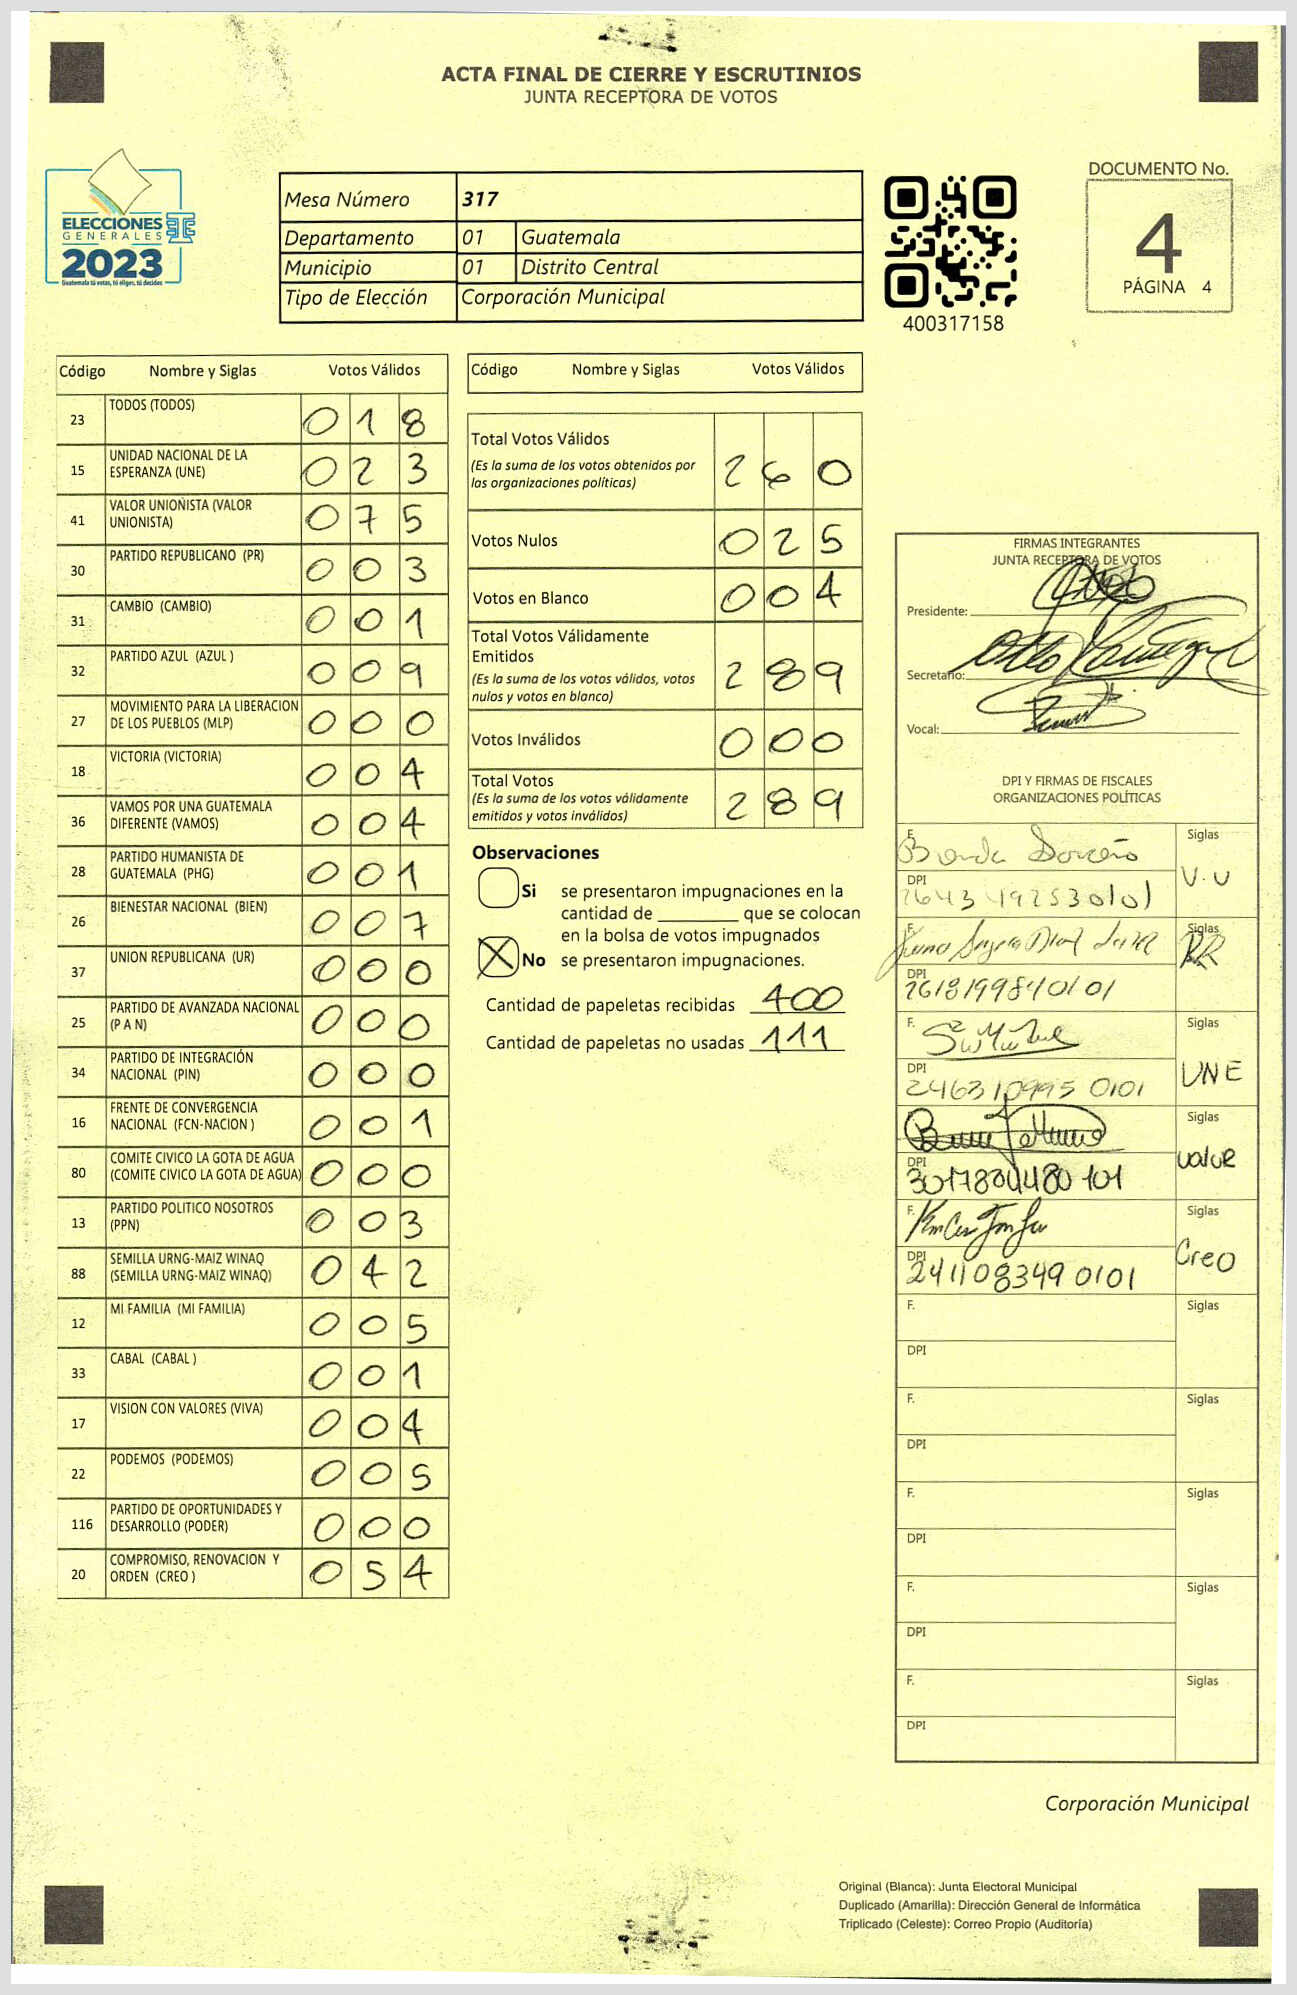 ACTA FINAL DE CIERRE Y ESCRUTINIOS
JUNTA RECEPTORA DE VOTOS
ELECCIONES
GENERALES
2023
Guatemala tú votas, tú eliges, tú decides
Mesa Número 317
Departamento 01 Guatemala
Municipio 01 Distrito Central
Tipo de Elección Corporación Municipal
400317158
DOCUMENTO No.
4
PÁGINA 4
Código Nombre y Siglas Votos Válidos
23 TODOS (TODOS) 0 1 8
15 UNIDAD NACIONAL DE LA ESPERANZA (UNE) 0 2 3
41 VALOR UNIONISTA (VALOR UNIONISTA) 0 7 5
30 PARTIDO REPUBLICANO (PR) 0 0 3
31 CAMBIO (CAMBIO) 0 0 1
32 PARTIDO AZUL (AZUL ) 0 0 9
27 MOVIMIENTO PARA LA LIBERACION DE LOS PUEBLOS (MLP) 0 0 0
18 VICTORIA (VICTORIA) 0 0 4
36 VAMOS POR UNA GUATEMALA DIFERENTE (VAMOS) 0 0 4
28 PARTIDO HUMANISTA DE GUATEMALA (PHG) 0 0 1
26 BIENESTAR NACIONAL (BIEN) 0 0 7
37 UNION REPUBLICANA (UR) 0 0 0
25 PARTIDO DE AVANZADA NACIONAL (P A N) 0 0 0
34 PARTIDO DE INTEGRACIÓN NACIONAL (PIN) 0 0 0
16 FRENTE DE CONVERGENCIA NACIONAL (FCN-NACION ) 0 0 1
80 COMITE CIVICO LA GOTA DE AGUA (COMITE CIVICO LA GOTA DE AGUA) 0 0 0
13 PARTIDO POLITICO NOSOTROS (PPN) 0 0 3
88 SEMILLA URNG-MAIZ WINAQ (SEMILLA URNG-MAIZ WINAQ) 0 4 2
12 MI FAMILIA (MI FAMILIA) 0 0 5
33 CABAL (CABAL ) 0 0 1
17 VISION CON VALORES (VIVA) 0 0 4
22 PODEMOS (PODEMOS) 0 0 5
116 PARTIDO DE OPORTUNIDADES Y DESARROLLO (PODER) 0 0 0
20 COMPROMISO, RENOVACION Y ORDEN (CREO ) 0 5 4
Código Nombre y Siglas Votos Válidos
Total Votos Válidos 2 6 0
(Es la suma de los votos obtenidos por
las organizaciones políticas)
Votos Nulos 0 2 5
Votos en Blanco 0 0 4
Total Votos Válidamente
Emitidos 2 8 9
(Es la suma de los votos válidos, votos
nulos y votos en blanco)
Votos Inválidos 0 0 0
Total Votos 2 8 9
(Es la suma de los votos válidamente
emitidos y votos inválidos)
Observaciones
Si se presentaron impugnaciones en la
cantidad de ________ que se colocan
en la bolsa de votos impugnados
X No se presentaron impugnaciones.
Cantidad de papeletas recibidas 400
Cantidad de papeletas no usadas 111
FIRMAS INTEGRANTES
JUNTA RECEPTORA DE VOTOS
Presidente:
Secretario:
Vocal:
DPI Y FIRMAS DE FISCALES
ORGANIZACIONES POLÍTICAS
F. Brenda Siglas V.U
DPI 2643492530101
F. Siglas
DPI 2618199840101
F. Siglas UNE
DPI 2463109950101
Siglas valor
DPI 3017804480101
F. Siglas Creo
DPI 2411083490101
F. Siglas
DPI
F. Siglas
DPI
F. Siglas
DPI
F. Siglas
DPI
F. Siglas
DPI
Corporación Municipal
Original (Blanca): Junta Electoral Municipal
Duplicado (Amarilla): Dirección General de Informática
Triplicado (Celeste): Correo Propio (Auditoría)